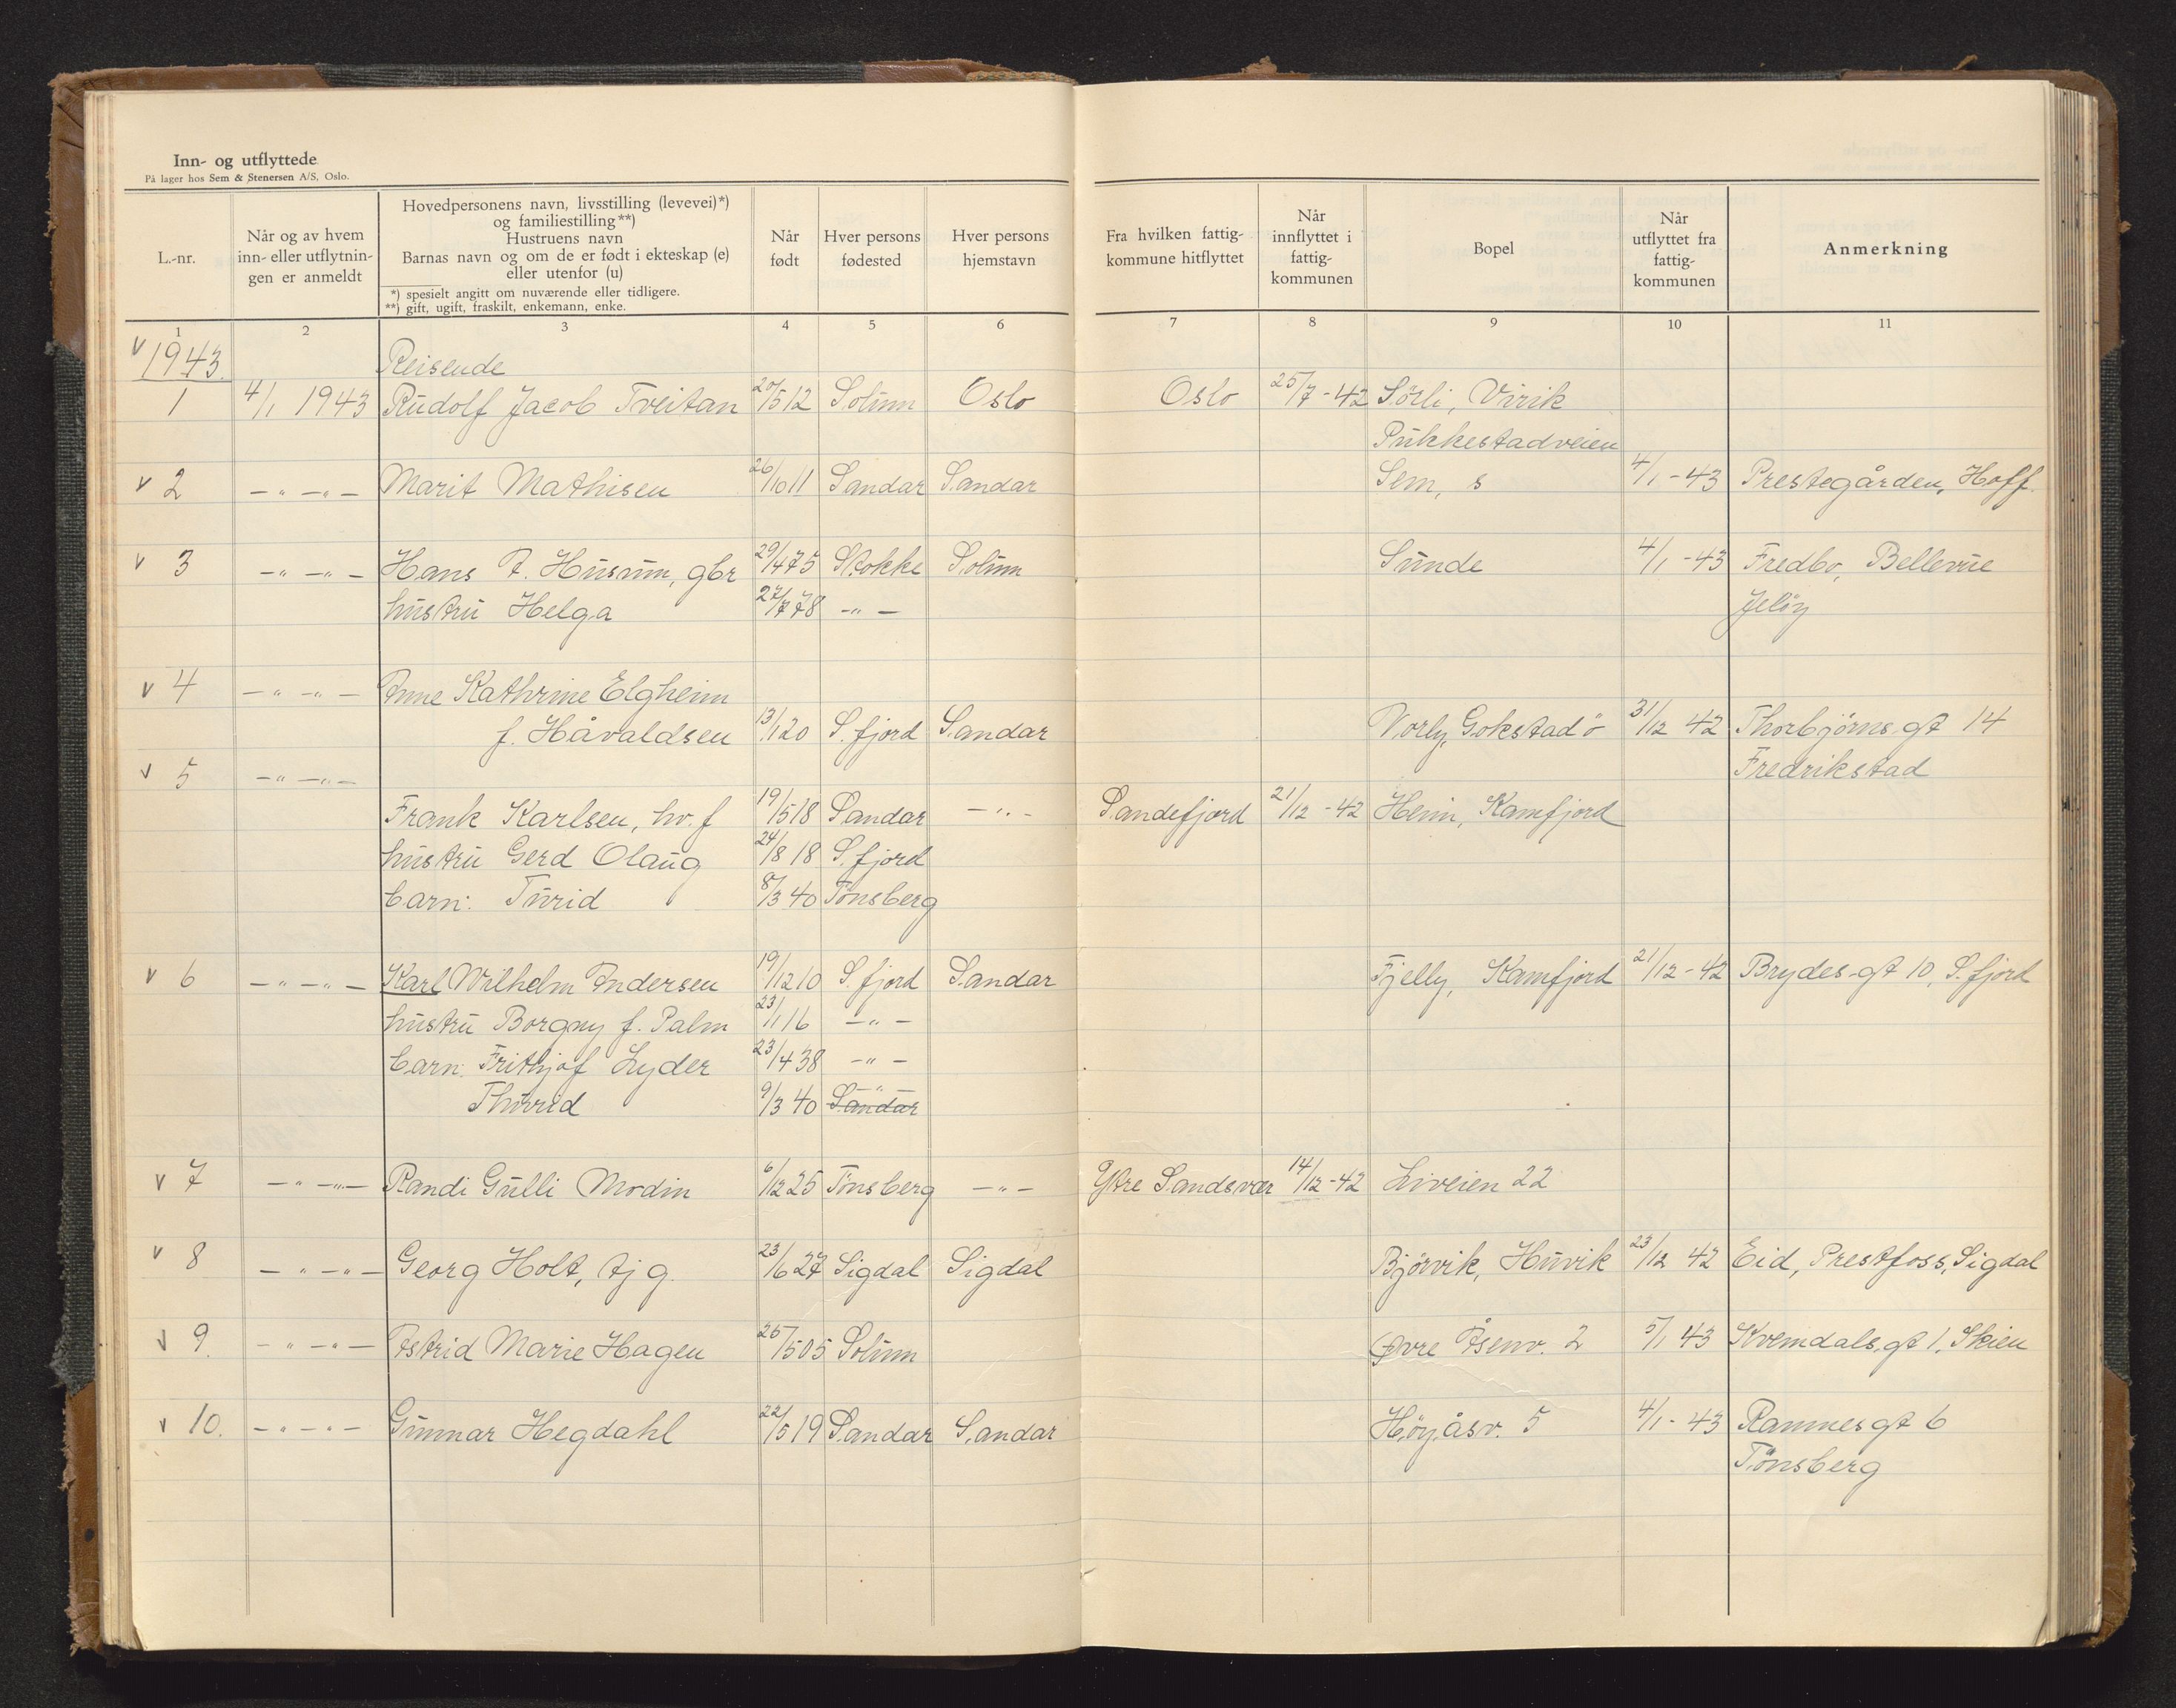 Inn- og utflyttede
På lager hos Sem & Stenersen A/S, Oslo.
L.-nr.
Når og av hvem
inn- eller utflytnin-
gen er anmeldt
Hovedpersonens navn, livsstilling (levevei)*)
og familiestilling**)
Hustruens navn
Barnas navn og om de er født i ekteskap (e)
eller utenfor (u)
*) spesielt angitt om nuværende eller tidligere.
**) gift, ugift, fraskilt, enkemann, enke.
Når
født
Hver persons
fødested
Hver persons
hjemstavn
Fra hvilken fattig-
kommune hitflyttet
Når
innflyttet i
fattig-
kommunen
Bopel
Når
utflyttet fra
fattig-
kommunen
Anmerkning
1 2 3 4 5 6 7 8 9 10 11
v 1943. Reisende
1 4/1 1943 Rudolf Jacob Tveitan 20/5 12 Solum Oslo Oslo 25/7 - 42 Sörli, Virik
Pukkestadveien
v 2 -"- -"- Marit Mathisen 26/10 11 Sandar Sandar Sem, s 4/1 - 43 Prestegården, Hoff.
v 3 -"- -"- Hans A. Husum, gbr 29/4 75 Stokke Solum Sunde 4/1 - 43 Fredbo, Bellevue
hustru Helga 27/7 78 -"- Jelöy
v 4 -"- -"- Anne Kathrine Elgheim
f. Håvaldsen 13/1 20 S.fjord Sandar Vorly, Gokstad ö 31/12 42 Thorbjörns gt 14
v 5 -"- -"- Fredrikstad
Frank Karlsen, hv.f 19/5 18 Sandar -"- Sandefjord 21/12 - 42 Heim, Kamfjord
hustru Gerd Olaug 24/8 18 S.fjord
barn: Turid 8/3 40 Tönsberg
v 6 -"- -"- Karl Wilhelm Andersen 19/12 10 S.fjord Sandar Fjelly, Kamfjord 21/12 - 42 Brydes gt 10, S.fjord
hustru Borgny f. Palm 23/1 16 -"-
barn: Frithjof Lyder 23/4 38 -"-
Thurid 9/3 40 -"- Sandar
v 7 -"- -"- Randi Gulli Modin 6/12 25 Tönsberg -"- Ytre Sandsvær 14/12 - 42 Liveien 22
v 8 -"- -"- Georg Holt, tj g. 23/6 27 Sigdal Sigdal Björvik, Huvik 23/12 42 Eid, Prestfoss, Sigdal
v 9. -"- -"- Astrid Marie Hagen 25/5 05 Solum Øvre Åsenv. 2 5/1 43 Kverndals gt 1, Skien
v 10. -"- -"- Gunnar Hegdahl 22/5 19 Sandar Sandar Höyåsv. 5 4/1 - 43 Ramnes gt 6
Tönsberg